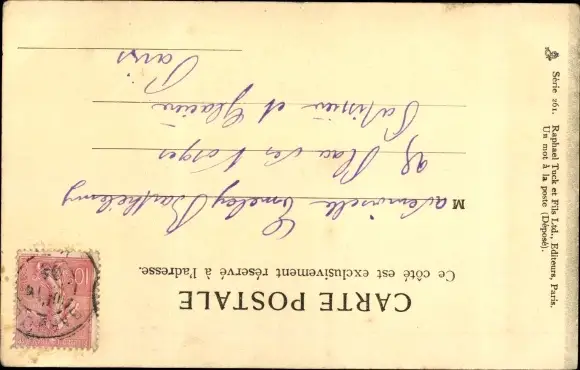 CARTE POSTALE
Ce côté est exclusivement réservé à l'adresse.
Mademoiselle Barthélemy
Place des Vosges
Patissier et Glacier
Paris
Série 261. Raphael Tuck et Fils Ltd., Editeurs, Paris.
Un mot à la poste (Déposé).
10